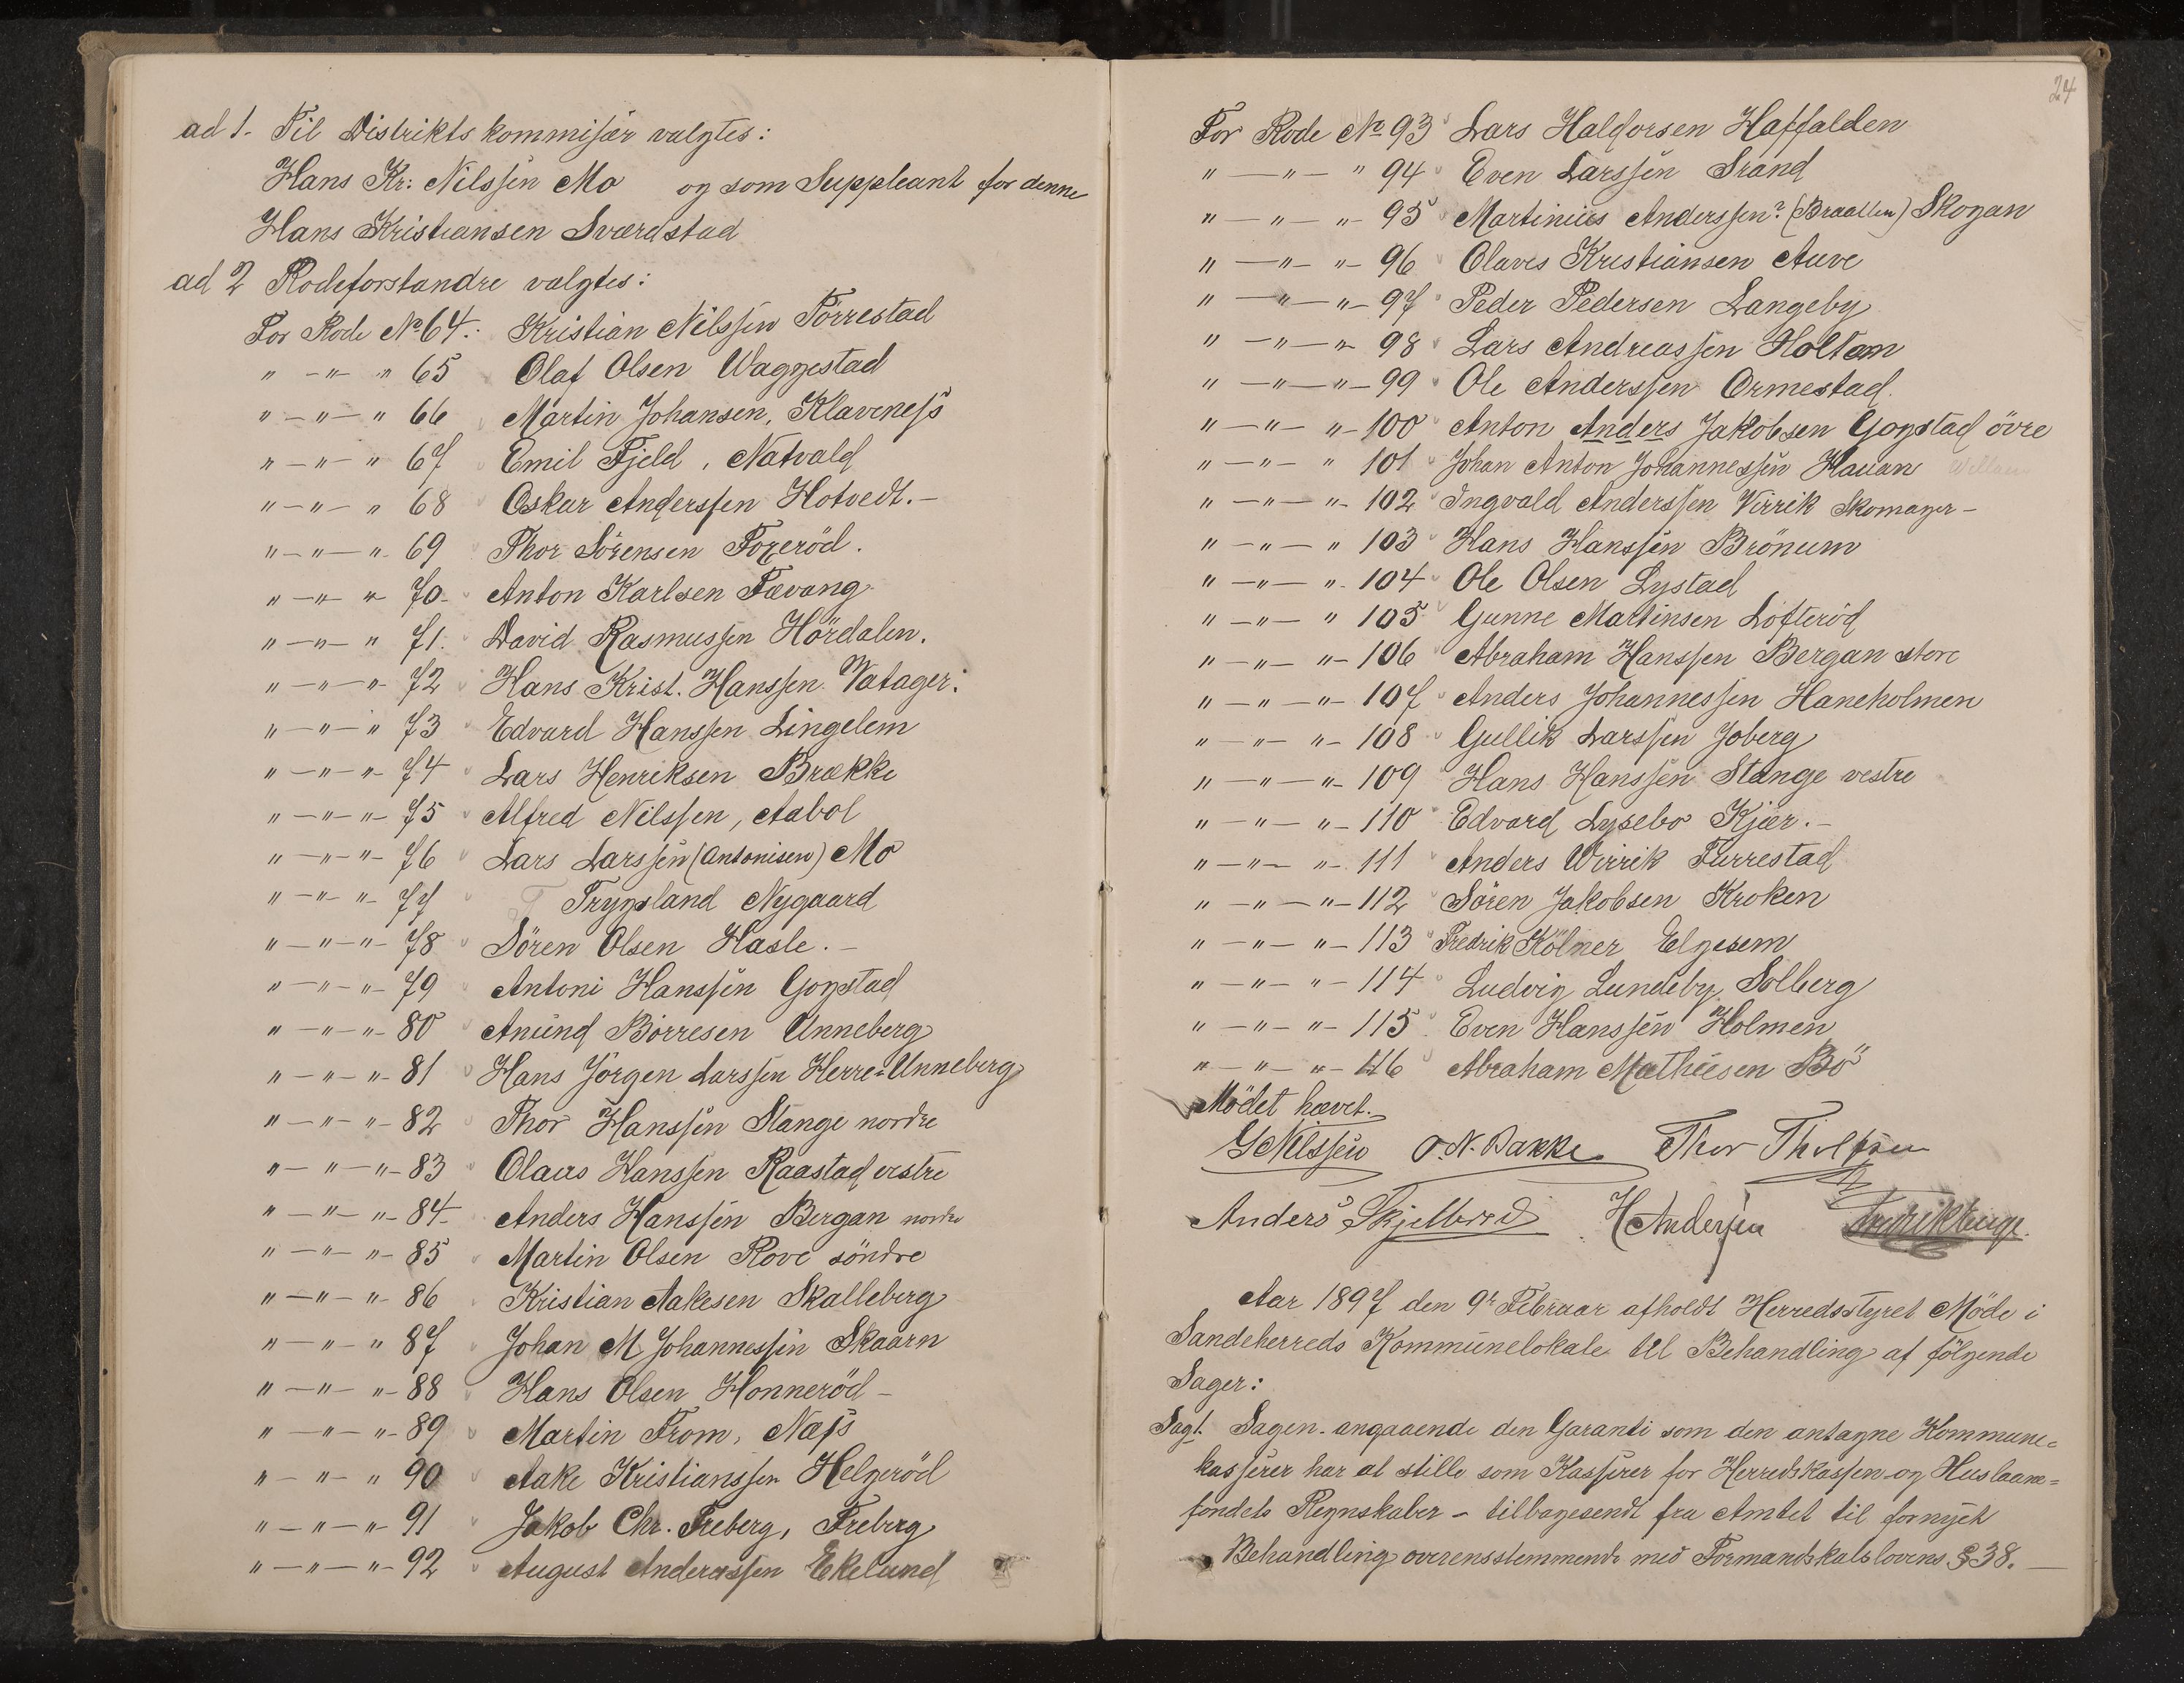 ad 1. Til Distriktskommisær valgtes:
Hans Kr: Nilssen Mo og som Suppleant for denne
Hans Kristiansen Sværdstad
ad 2 Rodeforstandre valgtes:
For Rode № 64.: Kristian Nilssen Törrestad
" — " — " 65 Olaf Olsen Waggestad
" — " — " 66 Martin Johansen, Klaveness
" — " — " 67 Emil Fjeld, Natvald
" — " — " 68 Oskar Anderssen Hotvedt. —
" — " — " 69 Thor Sörensen Fogeröd.
" — " — " 70 Anton Karlsen Fævang
" — " — " 71. David Rasmussen Hördalen.
" — " — " 72 Hans Krist. Hanssen Vatager:
" — " — " 73 Edvard Hanssen Lingelem
" — " — " 74 Lars Henriksen Brække
" — " — " 75 Alfred Nilssen, Aabol
" — " — " 76 Lars Larssen (Antonisen) Mo
" — " — " 77 T Trygsland Nygaard
" — " — " 78 Sören Olsen Hasle. —
" — " — " 79 Antoni Hanssen Gogstad
" — " — " 80 Amund Börresen Unneberg
" — " — " 81 Hans Jörgen Larssen Herre=Unneberg
" — " — " 82 Thor Hanssen Stange nordre
" — " — " 83 Olaus Hanssen Raastad vestre
" — " — " 84 Anders Hanssen Bergan nordre
" — " — " 85 Martin Olsen Rove söndre
" — " — " 86 Kristian Aakesen Skalleberg
" — " — " 87 Johan M Johannessen Skaarn
" — " — " 88 Hans Olsen Honneröd —
" — " — " 89 Martin From, Næss
" — " — " 90 Aake Kristianssen Helgeröd
" — " — " 91 Jakob Chr. Freberg, Freberg
" — " — " 92 August Anderassen Ekelund
24
For Rode № 93 Lars Halvorsen Haffalden
" — " — " 94 Even Larssen Srand
" — " — " 95 Martinius Anderssen (Braatten) Skogan
" — " — " 96 Olaves Kristiansen Auve
" — " — " 97 Peder Pedersen Langeby
" — " — " 98 Lars Andreassen Holtan
" — " — " 99 Ole Anderssen Ormestad.
" — " — " 100 Anton Anders Jakobsen Gogstad övre
" — " — " 101 Johan Anton Johannessen Hauan
" — " — " 102 Ingvald Anderssen Virrik Skomager —
" — " — " 103 Hans Hanssen Brönum
" — " — " 104 Ole Olsen Lystad
" — " — " 105 Gunne Martinsen Lofteröd
" — " — " 106 Abraham Hanssen Bergan store
" — " — " 107 Anders Johannessen Haneholmen
" — " — " 108 Gullik Larssen Joberg
" — " — " 109 Hans Hanssen Stange vestre
" — " — " 110 Edvard Lysebo Kjær. —
" — " — " 111 Anders Wirrik Furrestad
" — " — " 112 Sören Jakobsen Kroken
" — " — " 113 Fredrik Kölner Elgesem
" — " — " 114 Ludvig Lundeby Solberg
" — " — " 115 Even Hanssen Holmen
" — " — " 116 Abraham Mathiesen Bö
Mödet hævet.
G Nilssen O. N. Bakke Thor Tholfsen
Anders Skjelbred H Andersen Fredrik Lange.
Aar 1897 den 9r Februar afholdt Herredsstyret Möde i
Sandeherreds Kommunelokale til Behandling af fölgende
Sager:
Sag 1. Sagen angaaende den Garanti som den antagne Kommune=
kasserer har at stille som Kasserer for Herredskassen og Huslaane=
fondets Regnskaber — tilbagesendt fra Amtet til fornyet
Behandling overensstemmende med Formandskabslovens § 38. —